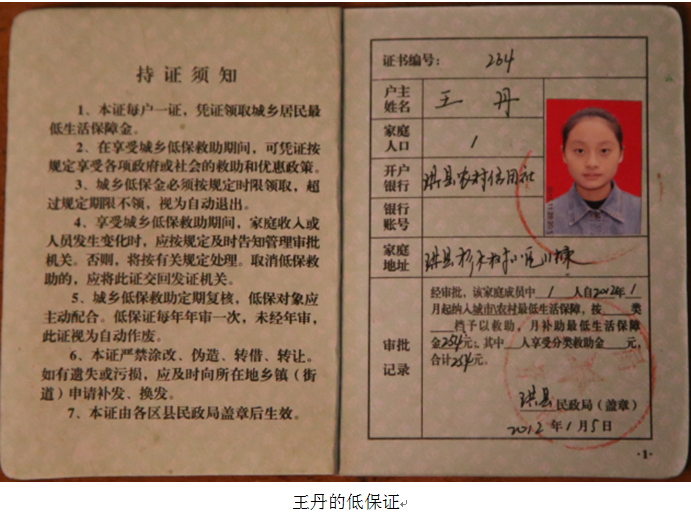 持证须知
1、本证每户一证，凭证领取城乡居民最
低生活保障金。
2、在享受城乡低保救助期间，可凭证按
规定享受各项政府或社会的救助和优惠政策。
3、城乡低保金必须按规定时限领取，超
过规定期限不领，视为自动退出。
4、享受城乡低保救助期间，家庭收入或
人员发生变化时，应按规定及时告知管理审批
机关。否则，将按有关规定处理。取消低保救
助的，应将此证交回发证机关。
5、城乡低保救助定期复核，低保对象应
主动配合。低保证每年年审一次，未经年审，
此证视为自动作废。
6、本证严禁涂改、伪造、转借、转让。
如有遗失或污损，应及时向所在地乡镇（街
道）申请补发、换发。
7、本证由各区县民政局盖章后生效。
证书编号： 264
户主
姓名 王丹
家庭
人口 1
开户
银行 珙县农村信用社
银行
账号
家庭
地址 珙县杉木村
审批
记录
经审批，该家庭成员中 1 人自2012年1
月起纳入城市\农村最低生活保障，按 类
档予以救助，月补助最低生活保障
金254元；其中 人享受分类救助金 元，
合计254元。
珙县民政局（盖章）
2012年1月5日
·1·
王丹的低保证